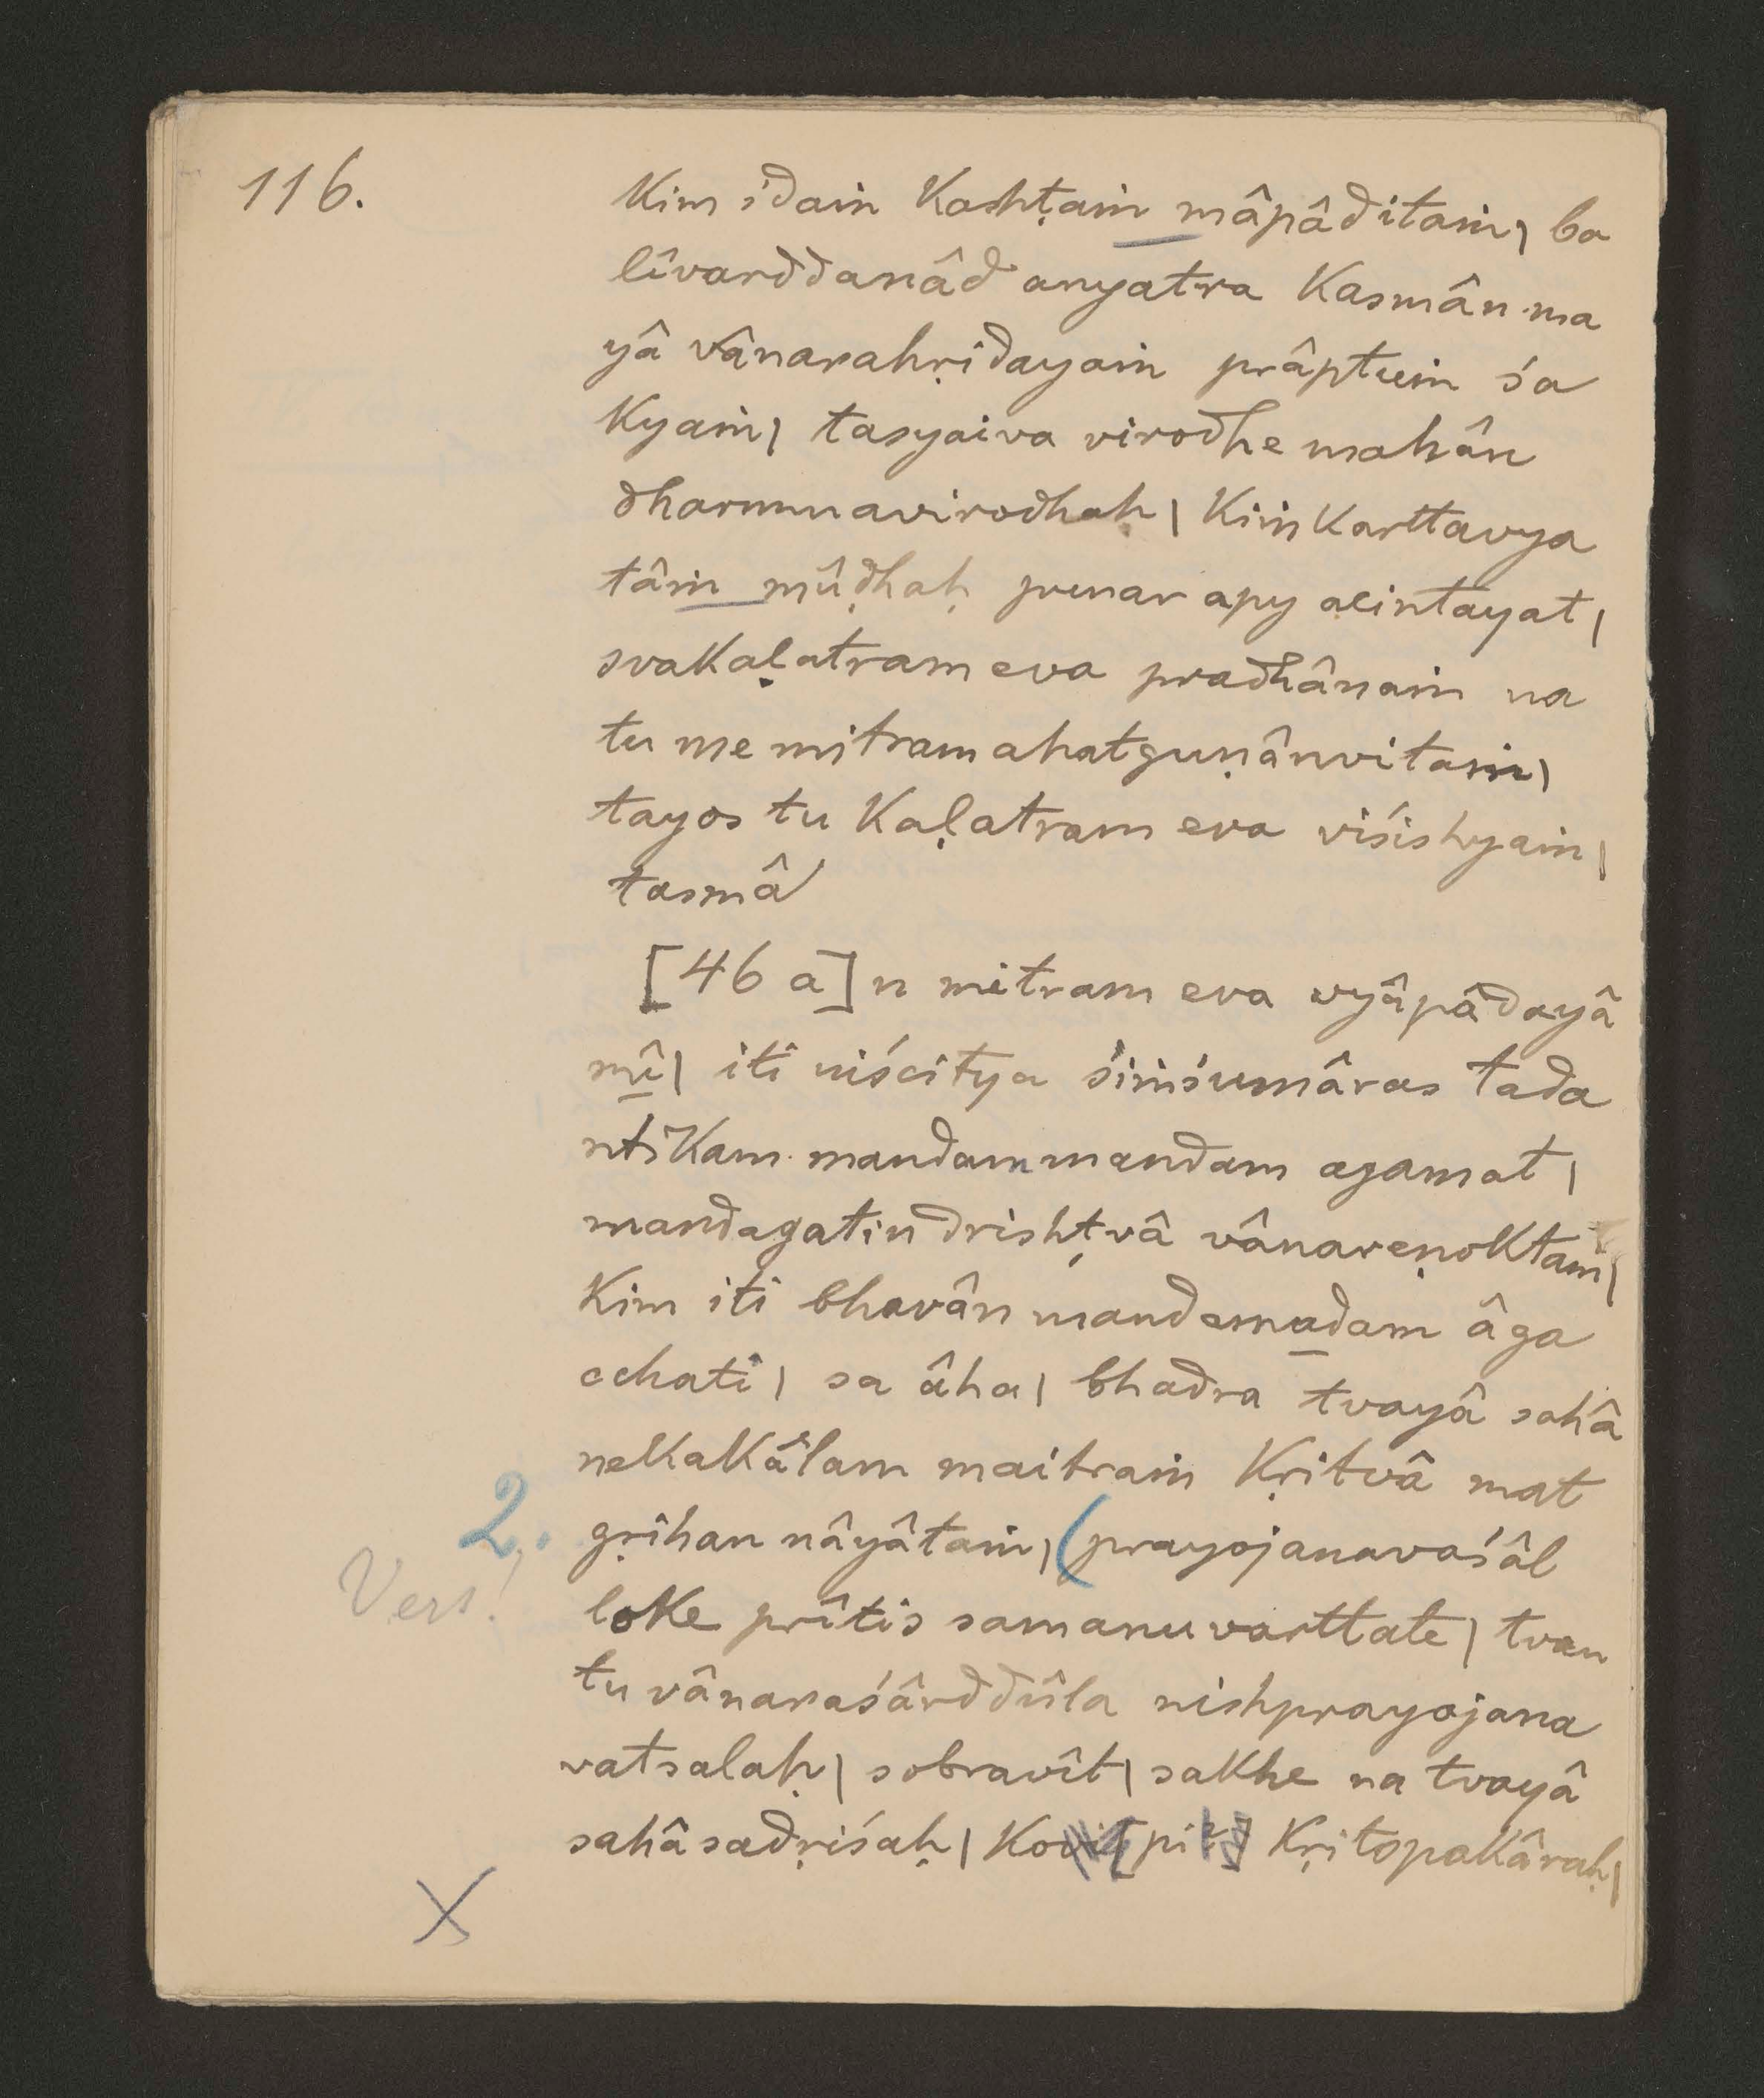 116.
Kim idaṁ Kashṭaṁ mâpâditaṁ| ba
lîvarddanâd anyatra Kasmân ma
yâ vânarahṛidayaṁ prâptuṁ śa
Kyaṁ| tasyaiva virodhe mahân
dharmmavirodhaḥ| Kiṁ Karttavya
tâṁ mûḍhaḥ punar apy acintayat|
svakaḷatram eva pradhânaṁ na
tu me mitram ahatguṇânvitaṁ|
tayos tu Kaḷatram eva viśishyaṁ|
tasmâ
[46 a] n mitram eva vyâpâdayâ
mî| iti niścitya śiṁśumâras tada
ntiKam mandammandam agamat|
mandagatin drishṭvâ vânareṇoktaṁ|
Kim iti bhavân mandamadam âga
cchati| sa âha| bhadra tvayâ sahâ
nekakâlam maitraṁ Kṛitvâ mat
2. gṛihan nâyâtaṁ| (prayojanavaśâl
Vers! loke prîtis samanuvarttate| tvan
tu vânaraśârddûla nishprayojana
vatsalaḥ| sobravît| sakhe na tvayâ
sahâ sadṛiśaḥ| Ko pi Kṛitopakâraḥ|
X